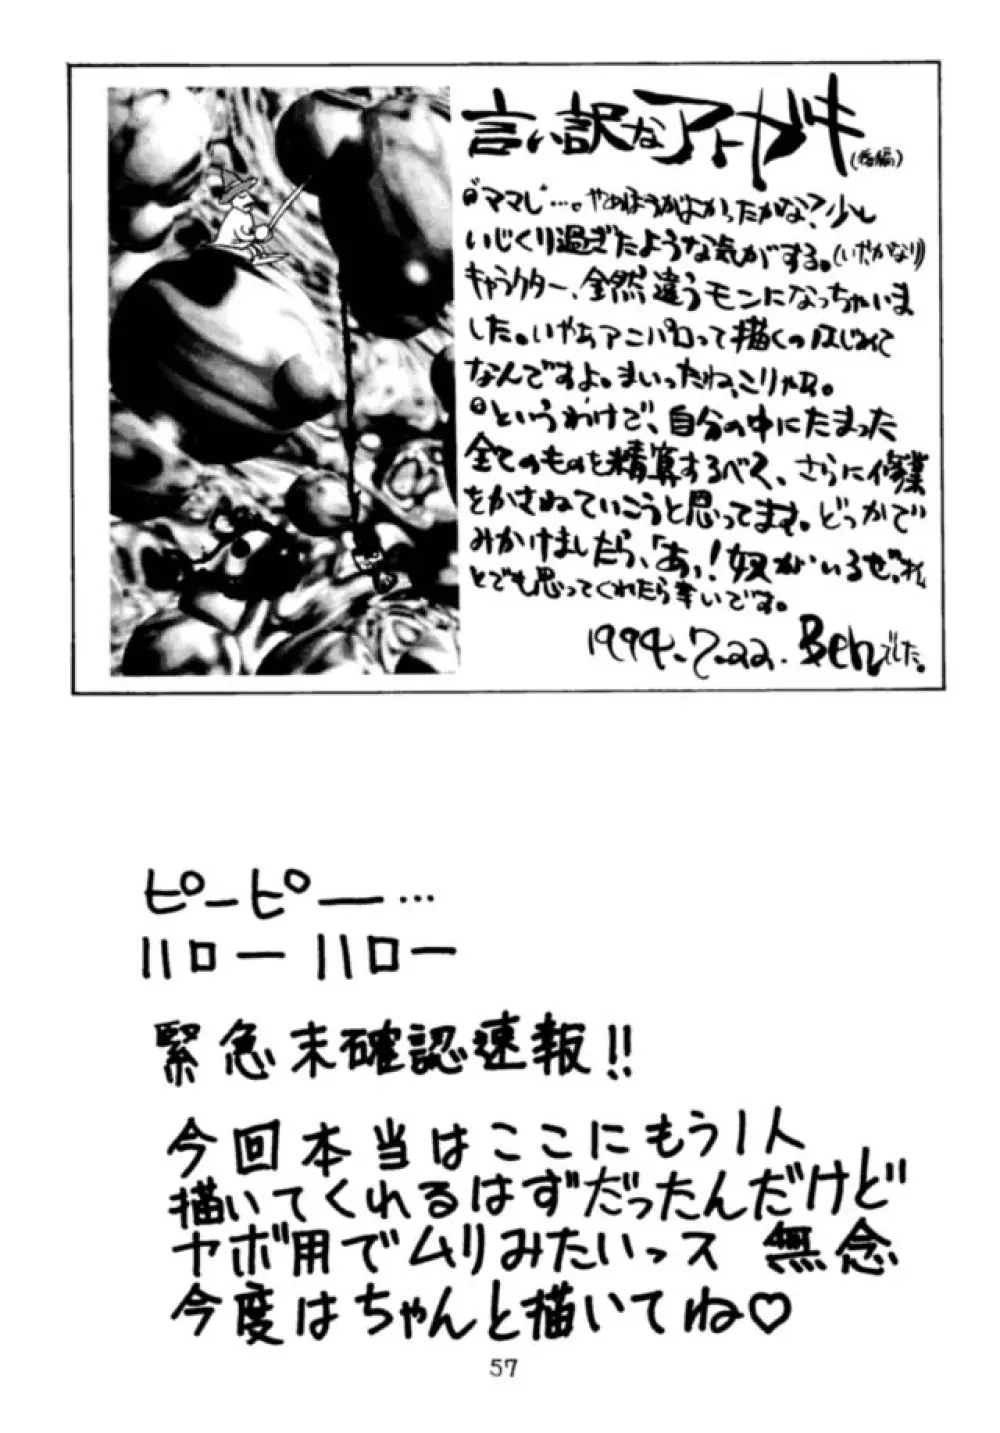 言い訳なアトガキ(番編)
“ママレ…。やめほうがよかったかな?少し
いじくり過ぎたような気がする。(いやかなり)
キャラクター、全然違うモンになっちゃいま
した。いやぁアニパロって描くのはじめて
なんですよ。まいったね、こりゃ。
というわけで、自分の中にたまった
全てのものを精算するべく、さらに修業
をかさねていこうと思ってます。どっかで
みかけましたら、「あっ!奴がいるぜ、
とでも思ってくれたら幸いです。
1994.7.22. Benでした。
ピーピー…
ハローハロー
緊急未確認速報!!
今回本当はここにもう1人
描いてくれるはずだったんだけど
ヤボ用でムリみたいっス 無念
今度はちゃんと描いてね♡
57